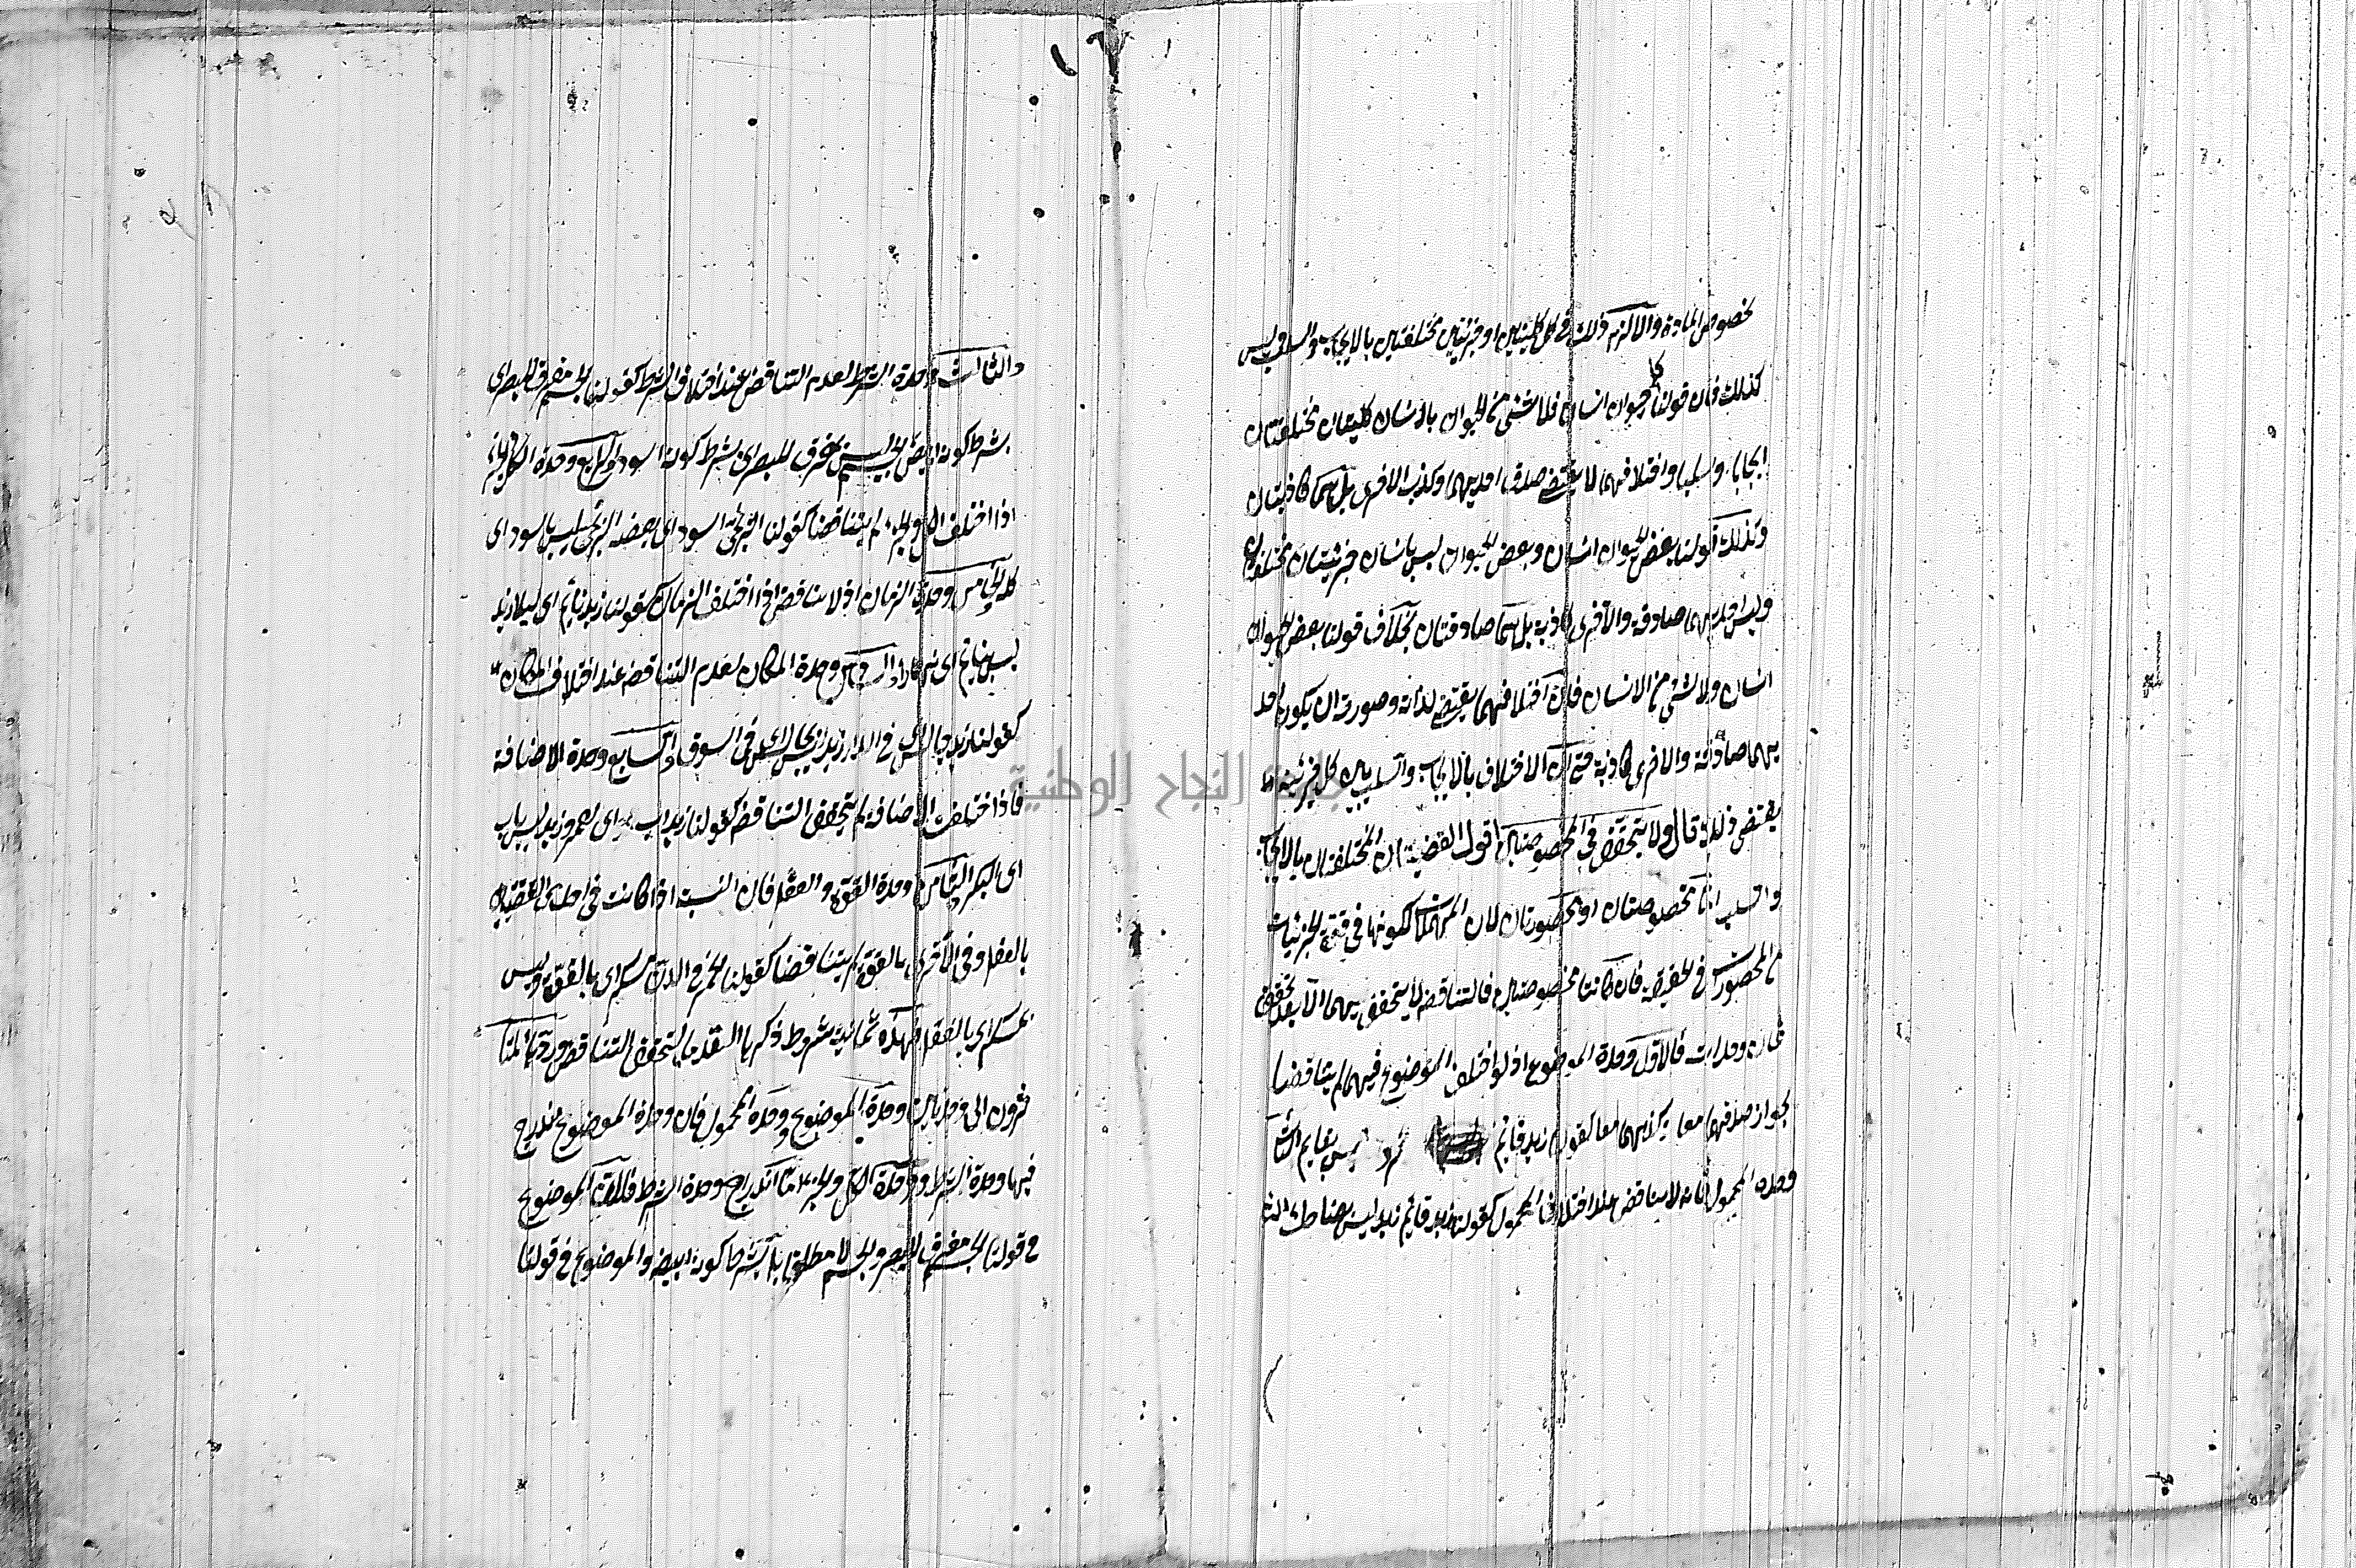 بخصوص المادة والا لزم ذلك في كل كليتين او جزئيتين مختلفتين بالايجاب والسلب وليس
كذلك فان قولنا كل حيوان انسان فلا شئ من الحيوان بالانسان كليتان مختلفتان
ايجابا وسلبا واختلافهما لا يقتضي صدق احديهما وكذب الاخرى بل هما كاذبتان
وكذلك قولنا بعض الحيوان انسان وبعض الحيوان ليس بانسان جزئيتان مختلفتان
وليس احديهما صادقة والاخرى كاذبة بل هما صادقتان بخلاف قولنا بعض الحيوان
انسان ولا شئ من الانسان فان اختلافهما يقتضي لذاته وصورته ان يكون احد
يهما صادقة والاخرى كاذبة حتى ان الاختلاف بالايجاب والسلب بين كل جزئية
يقتضي ذلك قال ولا يتحقق في المخصوصتين اقول القضيتان المختلفتان بالايجاب
والسلب اما مخصوصتان او محصورتان لان المهملات لكونها في قوة الجزئيات
من المحصورات في الحقيقة فان كانتا مخصوصتين فالتناقض لا يتحقق بينهما الا بعد تحقق
ثمان وحدات فالاول وحدة الموضوع اذ لو اختلف الموضوع فيهما لم يتناقضا
لجواز صدقهما معا وكذبهما معا كقولنا زيد قائم ليس بقايم الثا
وحدة المحمول فانه لا يتناقض عند اختلاف المحمول كقولنا زيد قائم زيد ليس بضاحك
والثالث وحدة الشرط لعدم التناقض عند اختلاف الشرط كقولنا الجسم مفرق للبصر اى
بشرط كونه ابيض الجسم ليس بمفرق للبصر اى بشرط كونه اسود والرابع وحدة الكل والجزء
اذا اختلف الكل والجزء لم يتناقضا كقولنا الزنجي اسود اى بعضه الزنجي ليس باسود اى
كله الخامس وحدة الزمان اذ لا تناقض اذا اختلف الزمان كقولنا زيد نايم اى ليلا زيد
ليس بنايم اى نهارا والسادس وحدة المكان لعدم التناقض عند اختلاف المكان
كقولنا زيد جالس في الدار زيد ليس بجالس في السوق والسابع وحدة الاضافة
فاذا اختلف الاضافة لم يتحقق التناقض كقولنا زيد اب اى لعمرو زيد ليس باب
اى لبكر الثامن وحدة القوة والفعل فان النسبة اذا كانت في احدى القضيتين
بالفعل وفي الاخرى بالقوة لم يتناقضا كقولنا الخمر في الدن مسكر اى بالقوة وليس
بمسكر اى بالفعل فهذه ثمانية شروط ذكرها القدما لتحقق التناقض وردها المتا
خرون الى وحدتين وحدة الموضوع ووحدة المحمول فان وحدة الموضوع مندرج
فيها وحدة الشرط ووحدة الكل والجزء اما اندراج وحدة الشرط فلان الموضوع
في قولنا الجسم مفرق للبصر والجسم لا مطلقا بل بشرط كونه ابيض والموضوع في قولنا
جامعة النجاح الوطنية